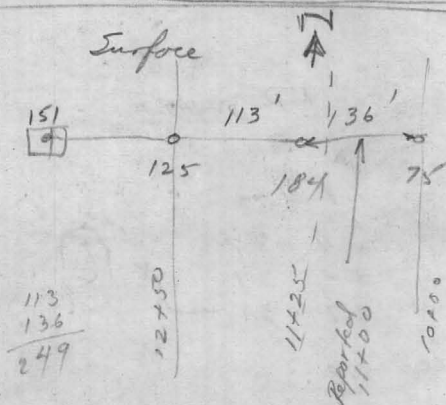 Surface
N
151
113'
136'
125
184
75
113
136
249
12+50
11+25
Reported
11+00
10+00